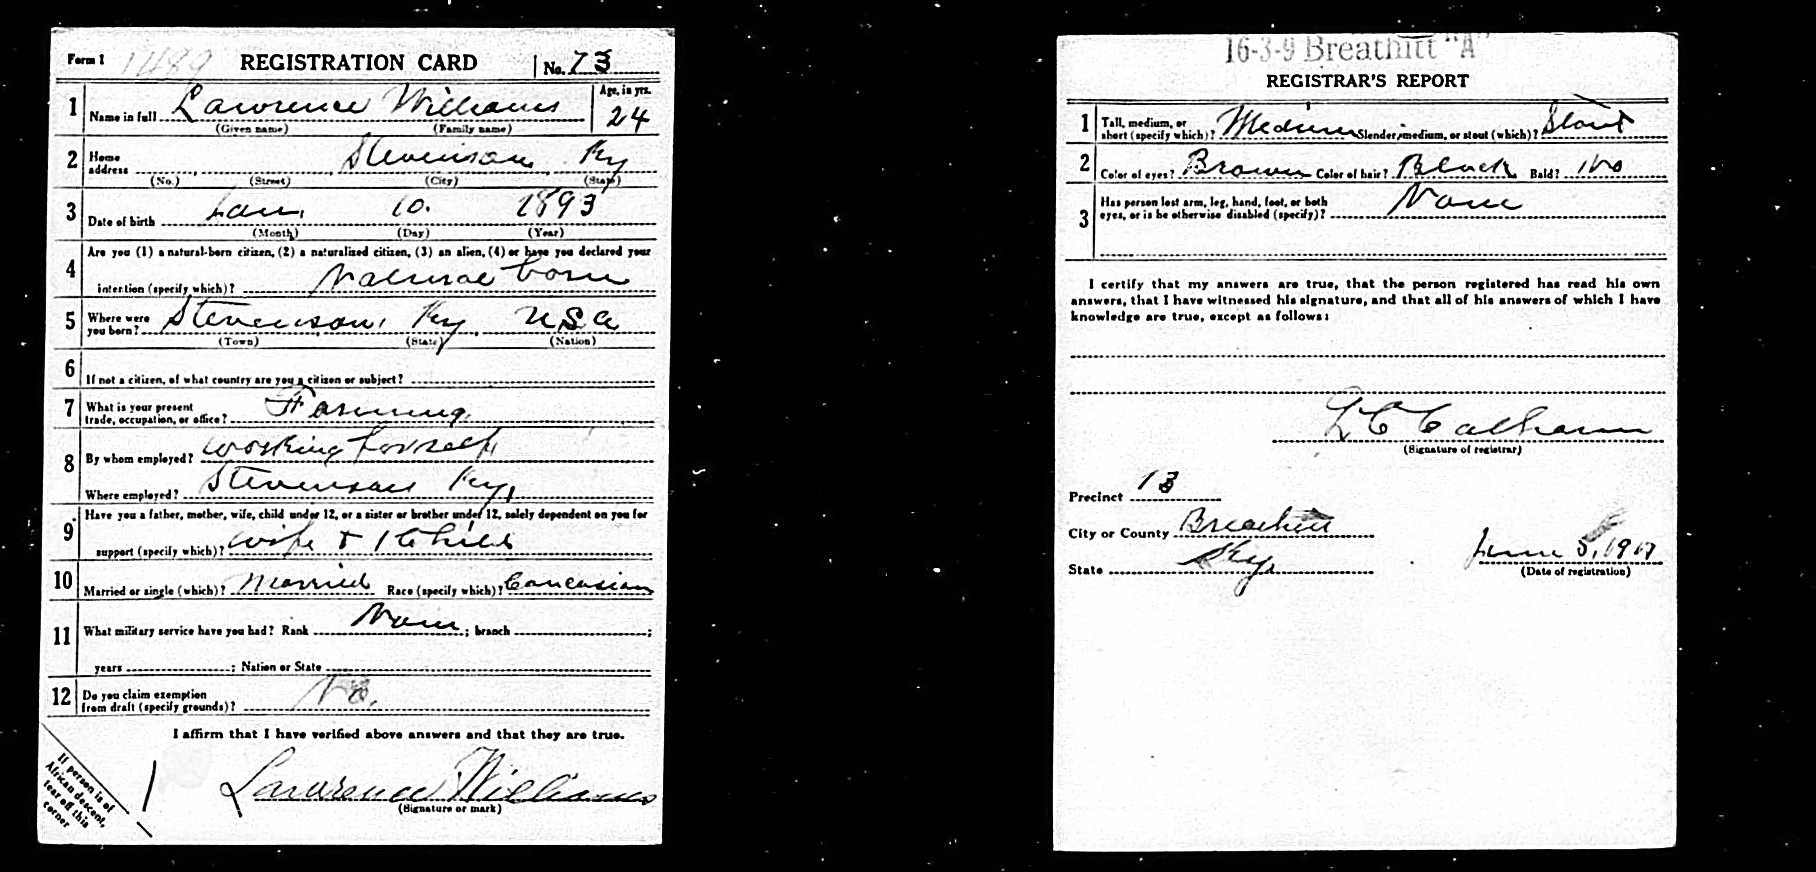 Form 1 1489 REGISTRATION CARD No. 73
1 Name in full Lawrence Williams Age, in yrs. 24
(Given name) (Family name)
2 Home address Stevenson Ky
(No.) (Street) (City) (State)
3 Date of birth Jan. 10. 1893
(Month) (Day) (Year)
4 Are you (1) a natural-born citizen, (2) a naturalized citizen, (3) an alien, (4) or have you declared your
intention (specify which)? Natural born
5 Where were you born? Stevenson, Ky, USA
(Town) (State) (Nation)
6 If not a citizen, of what country are you a citizen or subject?
7 What is your present
trade, occupation, or office? Farming
8 By whom employed? Working for self,
Where employed? Stevenson Ky,
9 Have you a father, mother, wife, child under 12, or a sister or brother under 12, solely dependent on you for
support (specify which)? Wife & 1 Child
10 Married or single (which)? Married Race (specify which)? Caucasian
11 What military service have you had? Rank None ; branch ;
years ; Nation or State
12 Do you claim exemption
from draft (specify grounds)? No.
I affirm that I have verified above answers and that they are true.
Lawrence Williams
(Signature or mark)
If person is of
African descent,
tear off this
corner
16-3-9 Breathitt "A"
REGISTRAR'S REPORT
1 Tall, medium, or
short (specify which)? Medium Slender, medium, or stout (which)? Stout
2 Color of eyes? Brown Color of hair? Black Bald? No
3 Has person lost arm, leg, hand, foot, or both
eyes, or is he otherwise disabled (specify)? None
I certify that my answers are true, that the person registered has read his own
answers, that I have witnessed his signature, and that all of his answers of which I have
knowledge are true, except as follows:
L C Calhoun
(Signature of registrar)
Precinct 13
City or County Breathitt
State Ky. June 5, 1917
(Date of registration)